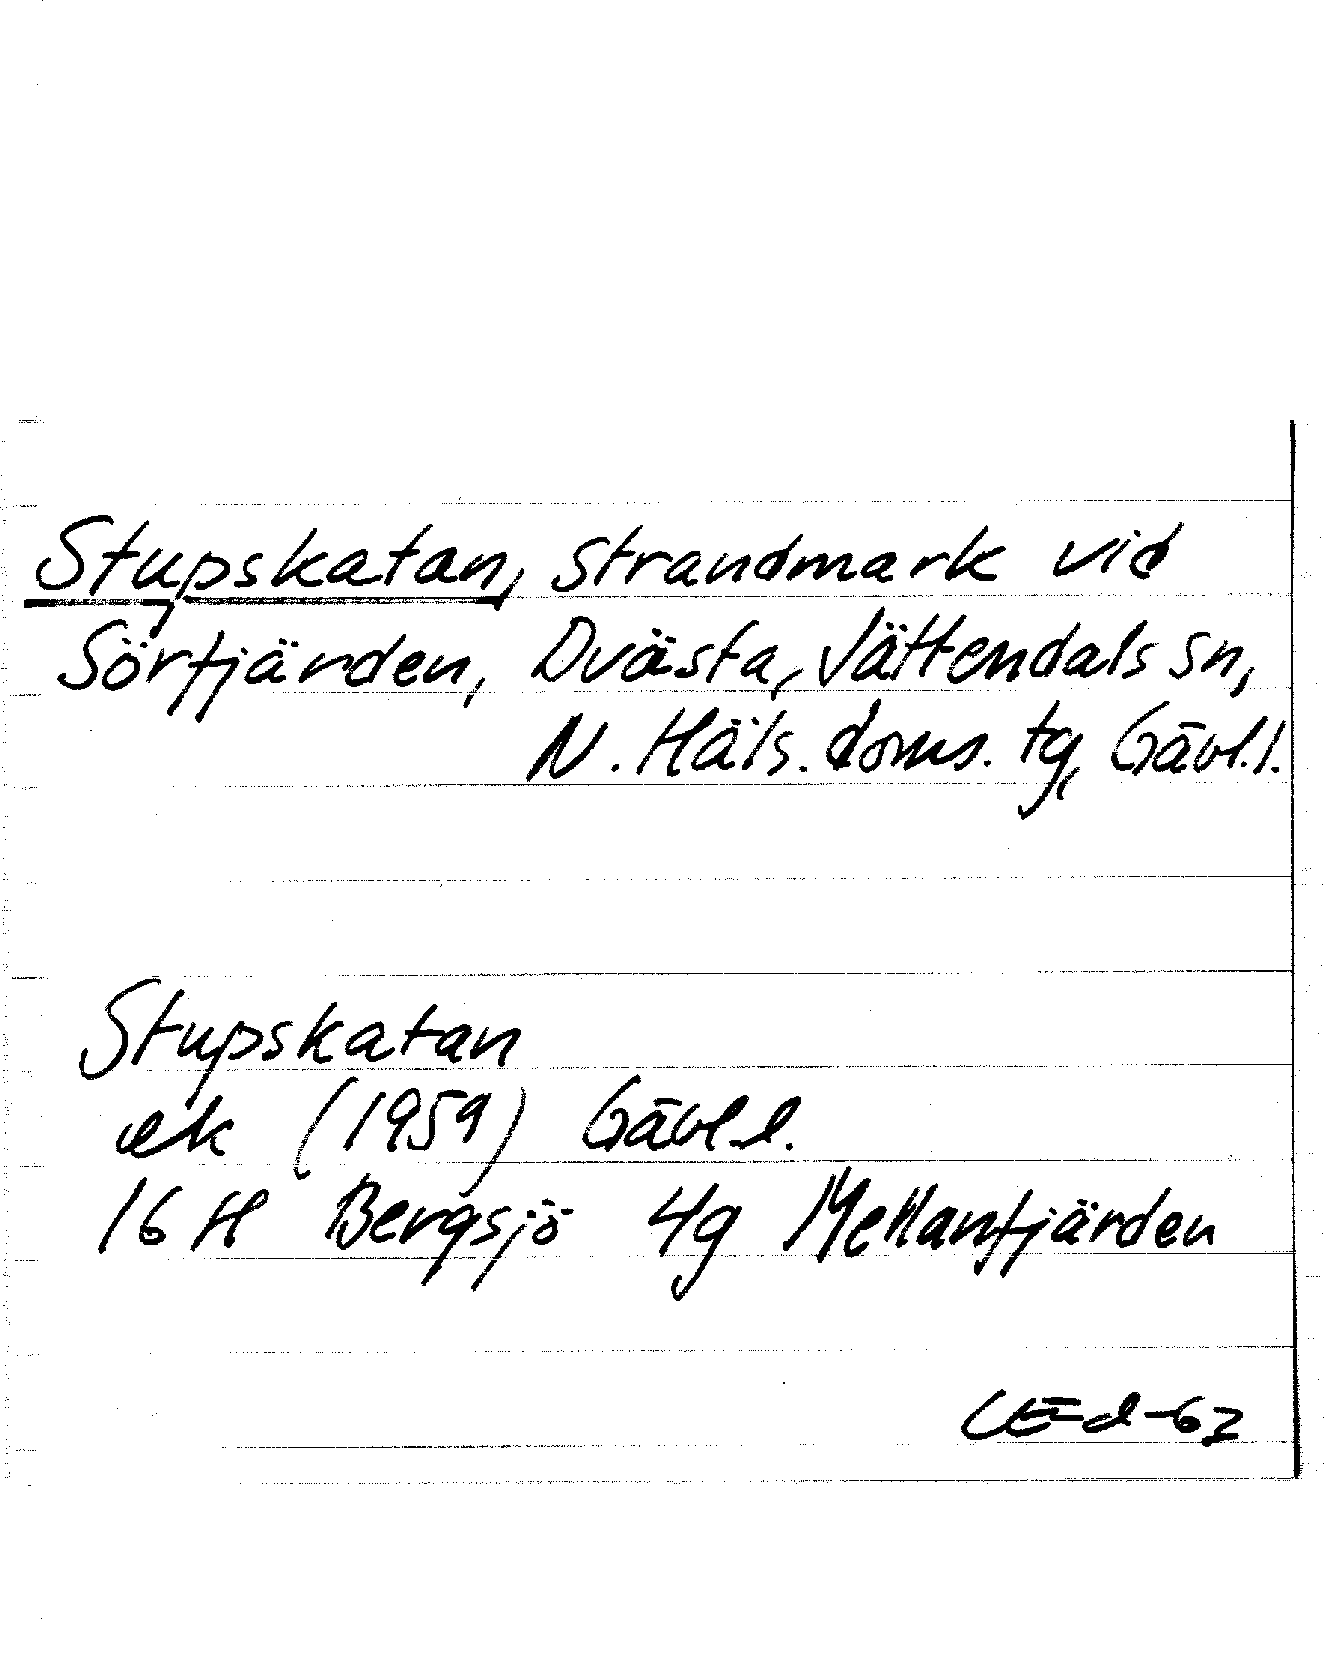 Stupskatan, strandmark vid
Sörfjärden, Dvästa, Jättendals sn,
N. Häls. doms. tg, Gävl.l.
Stupskatan
ek (1959) Gävl.l.
16 H Bergsjö 4g Mellanfjärden